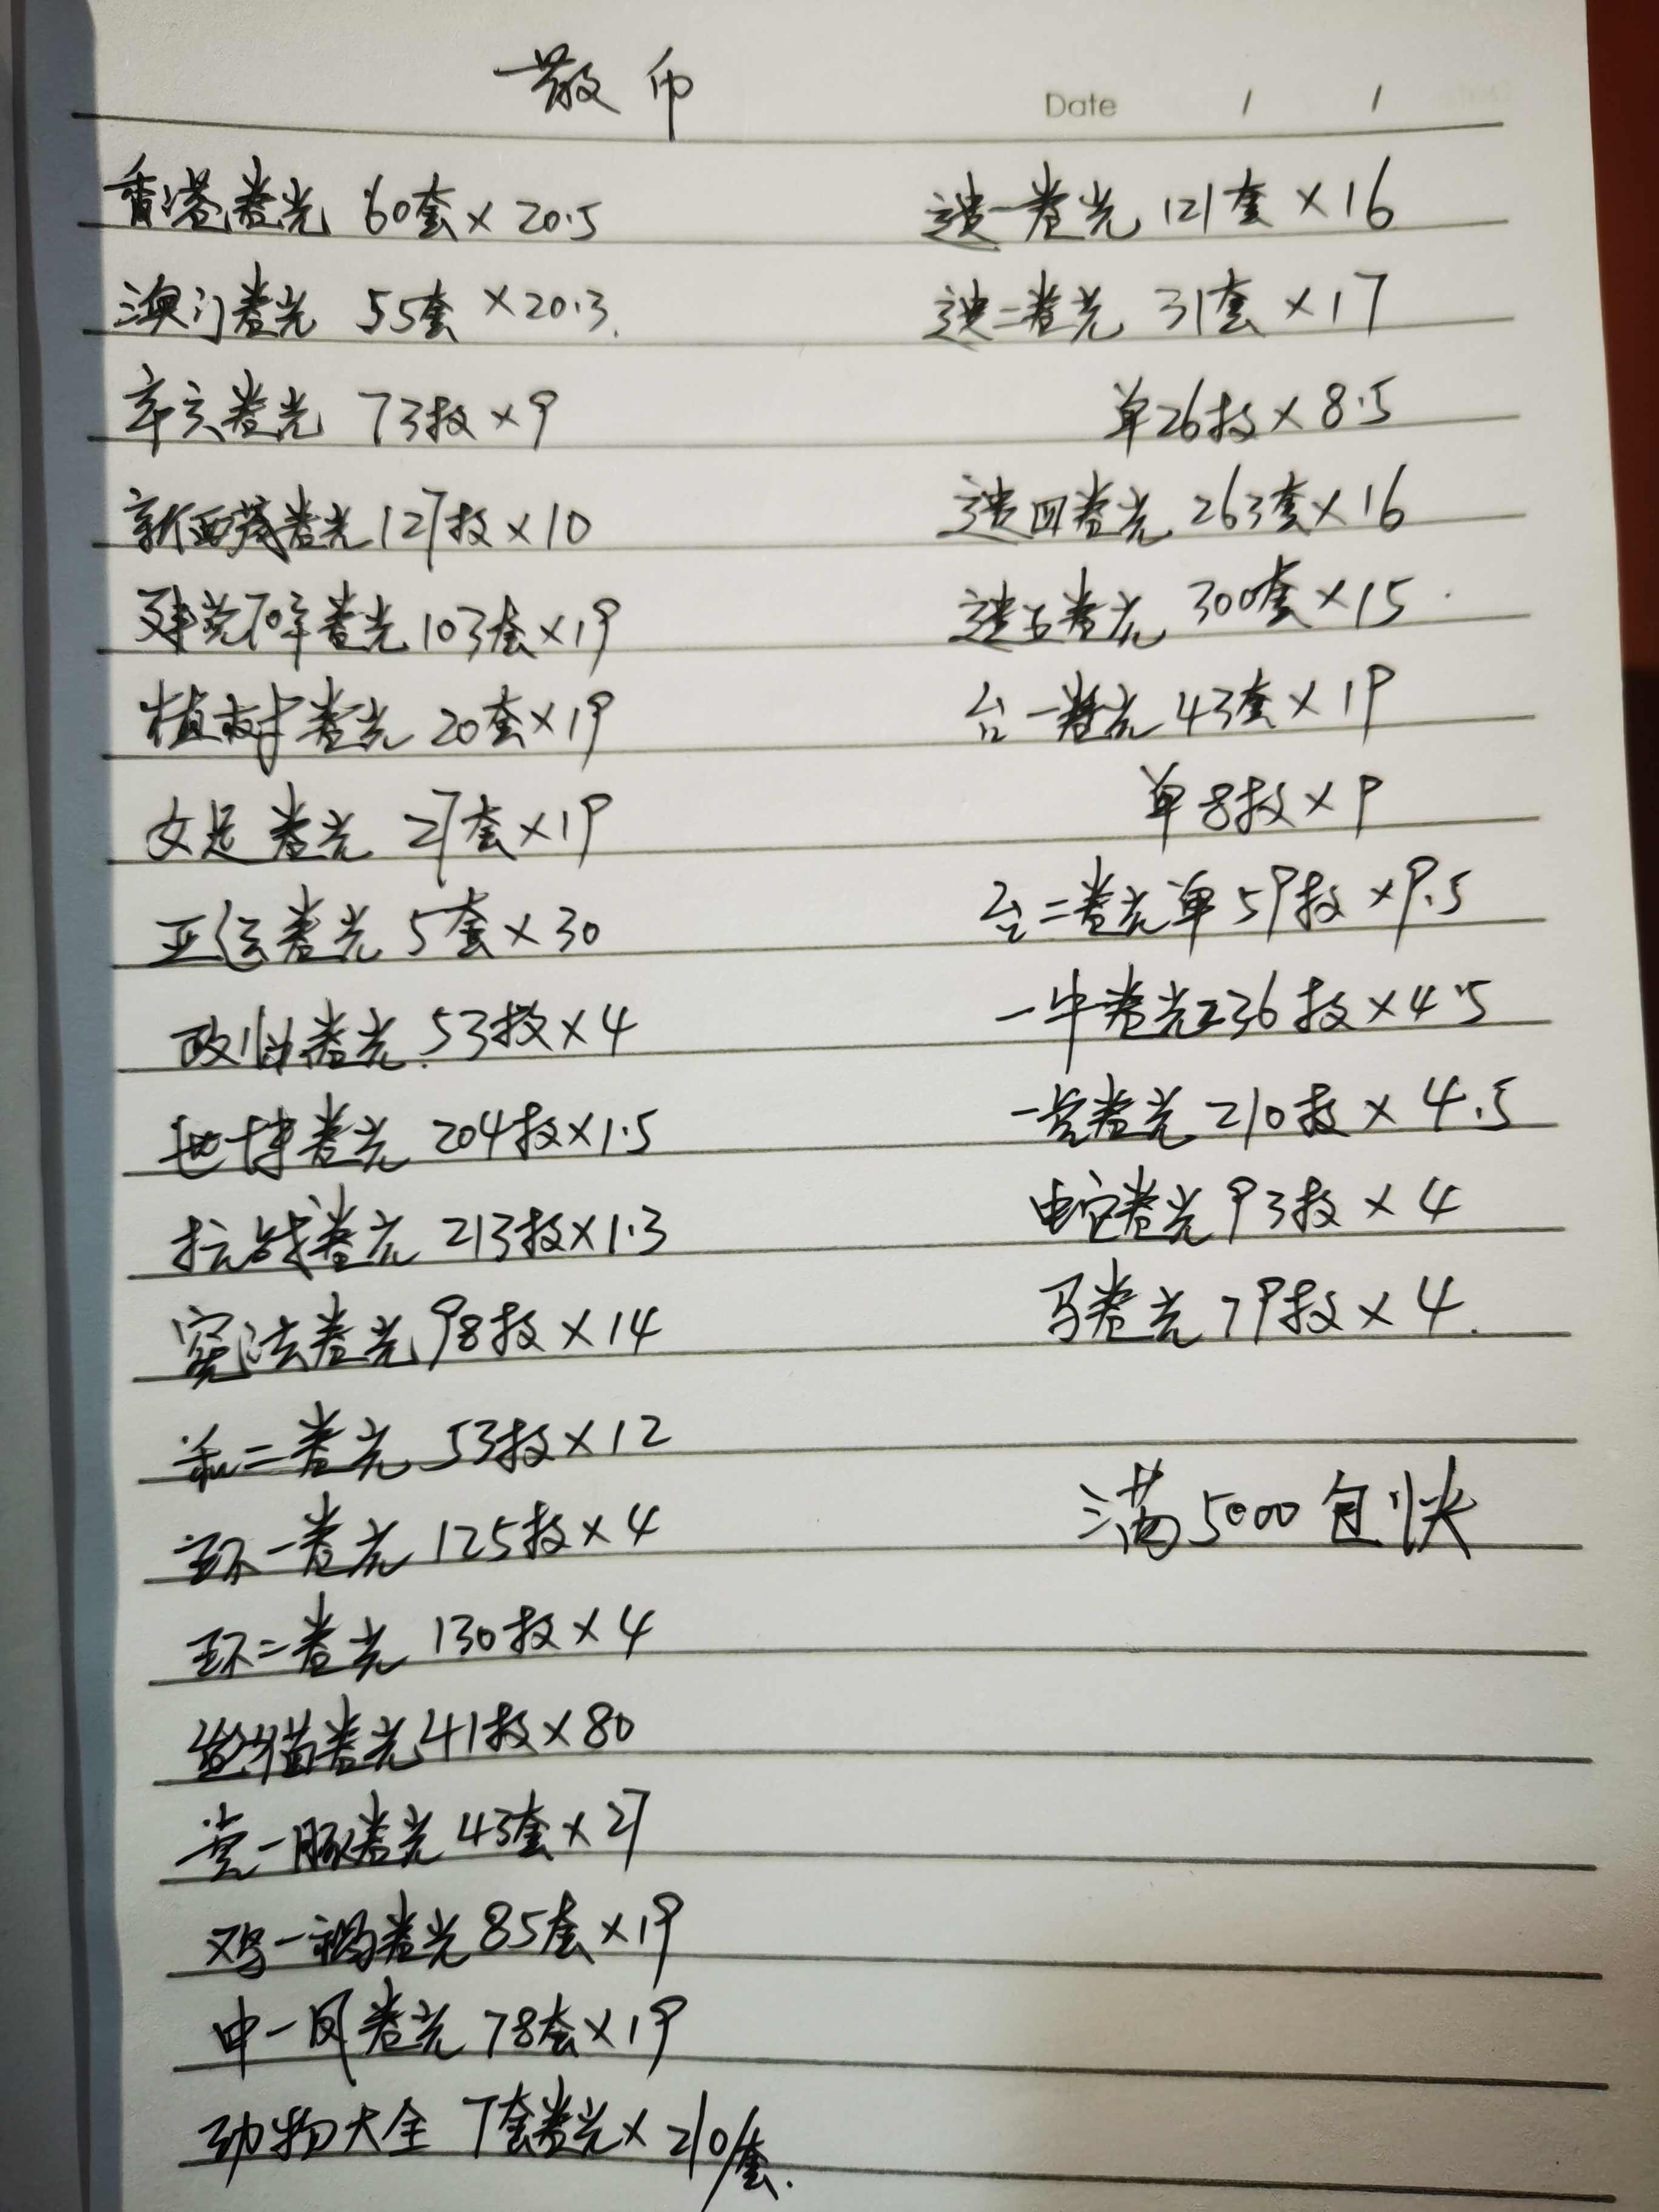 散币
Date / /
香港卷光 60套×20.5
澳门卷光 55套×20.3.
辛亥卷光 73枚×9
新西藏卷光 127枚×10
建党70年卷光 103套×19
植树卷光 20套×19
女足卷光 27套×19
亚运卷光 5套×30
政协卷光 53枚×4
世博卷光 204枚×1.5
抗战卷光 213枚×1.3
宪法卷光 98枚×14
和二卷光 53枚×12
环一卷光 125枚×4
环二卷光 130枚×4
熊猫卷光 41枚×80
党一豚卷光 43套×27
鸡一鹮卷光 85套×19
中一凤卷光 78套×19
动物大全 7套卷光×210/套.
遗一卷光 121套×16
遗二卷光 31套×17
单26枚×8.5
遗四卷光 263套×16
遗五卷光 300套×15
台一卷光 43套×19
单8枚×9
台二卷光单59枚×9.5
一牛卷光236枚×4.5
一兔卷光210枚×4.5
蛇卷光93枚×4
马卷光79枚×4.
满5000包快